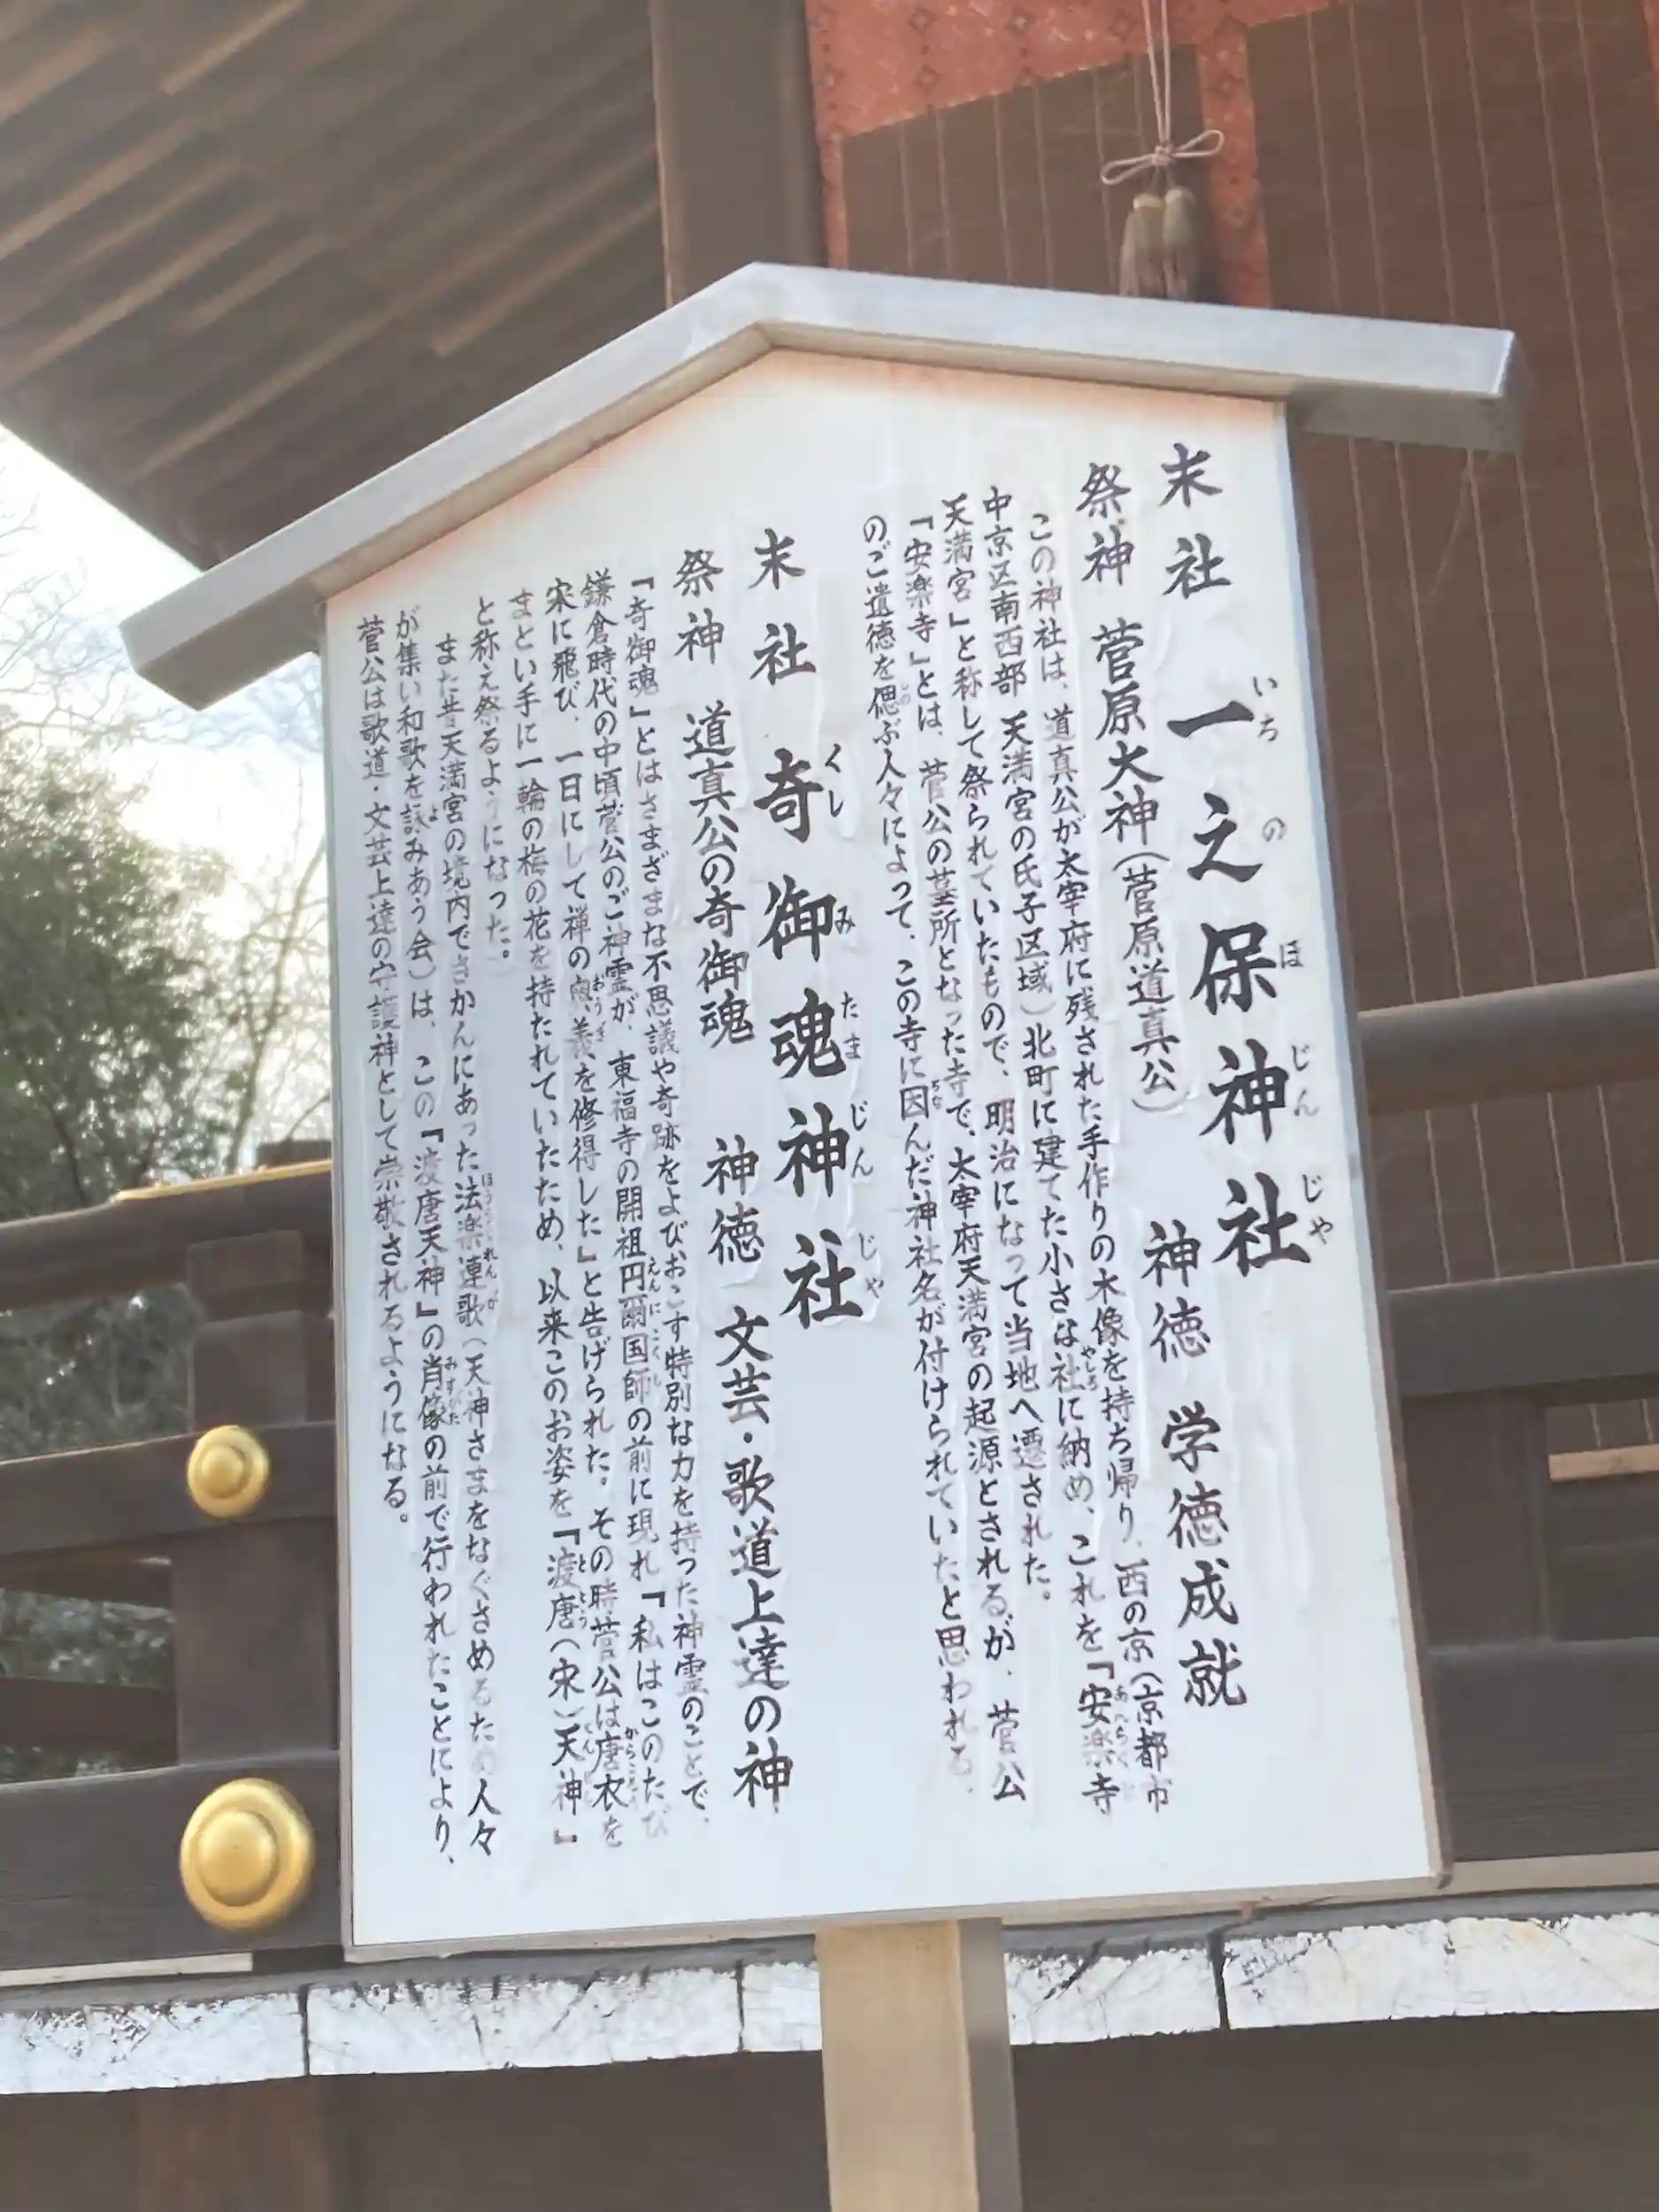 末社 一之保神社
いちのほじんじゃ
祭神 菅原大神(菅原道真公) 神徳 学徳成就
この神社は、道真公が太宰府に残された手作りの木像を持ち帰り、西の京(京都市
中京区南西部 天満宮の氏子区域)北町に建てた小さな社に納め、これを『安楽寺
やしろ
あんらくじ
天満宮』と称して祭られていたもので、明治になって当地へ遷された。
『安楽寺』とは、菅公の墓所となった寺で、太宰府天満宮の起源とされるが、菅公
のご遺徳を偲ぶ人々によって、この寺に因んだ神社名が付けられていたと思われる。
しの
ちな
末社 奇御魂神社
くしみたまじんじゃ
祭神 道真公の奇御魂 神徳 文芸・歌道上達の神
『奇御魂』とはさまざまな不思議や奇跡をよびおこす特別な力を持った神霊のことで、
鎌倉時代の中頃菅公のご神霊が、東福寺の開祖円爾国師の前に現れ『私はこのたび
えんにこくし
宋に飛び、一日にして禅の奥義を修得した』と告げられた。その時菅公は唐衣を
おうぎ
からころも
まとい手に一輪の梅の花を持たれていたため、以来このお姿を『渡唐(宋)天神』
ととう
てんじん
と称え祭るようになった。
また昔天満宮の境内でさかんにあった法楽連歌(天神さまをなぐさめるため人々
ほうらくれんが
が集い和歌を詠みあう会)は、この『渡唐天神』の肖像の前で行われたことにより、
よ
みすがた
菅公は歌道・文芸上達の守護神として崇敬されるようになる。